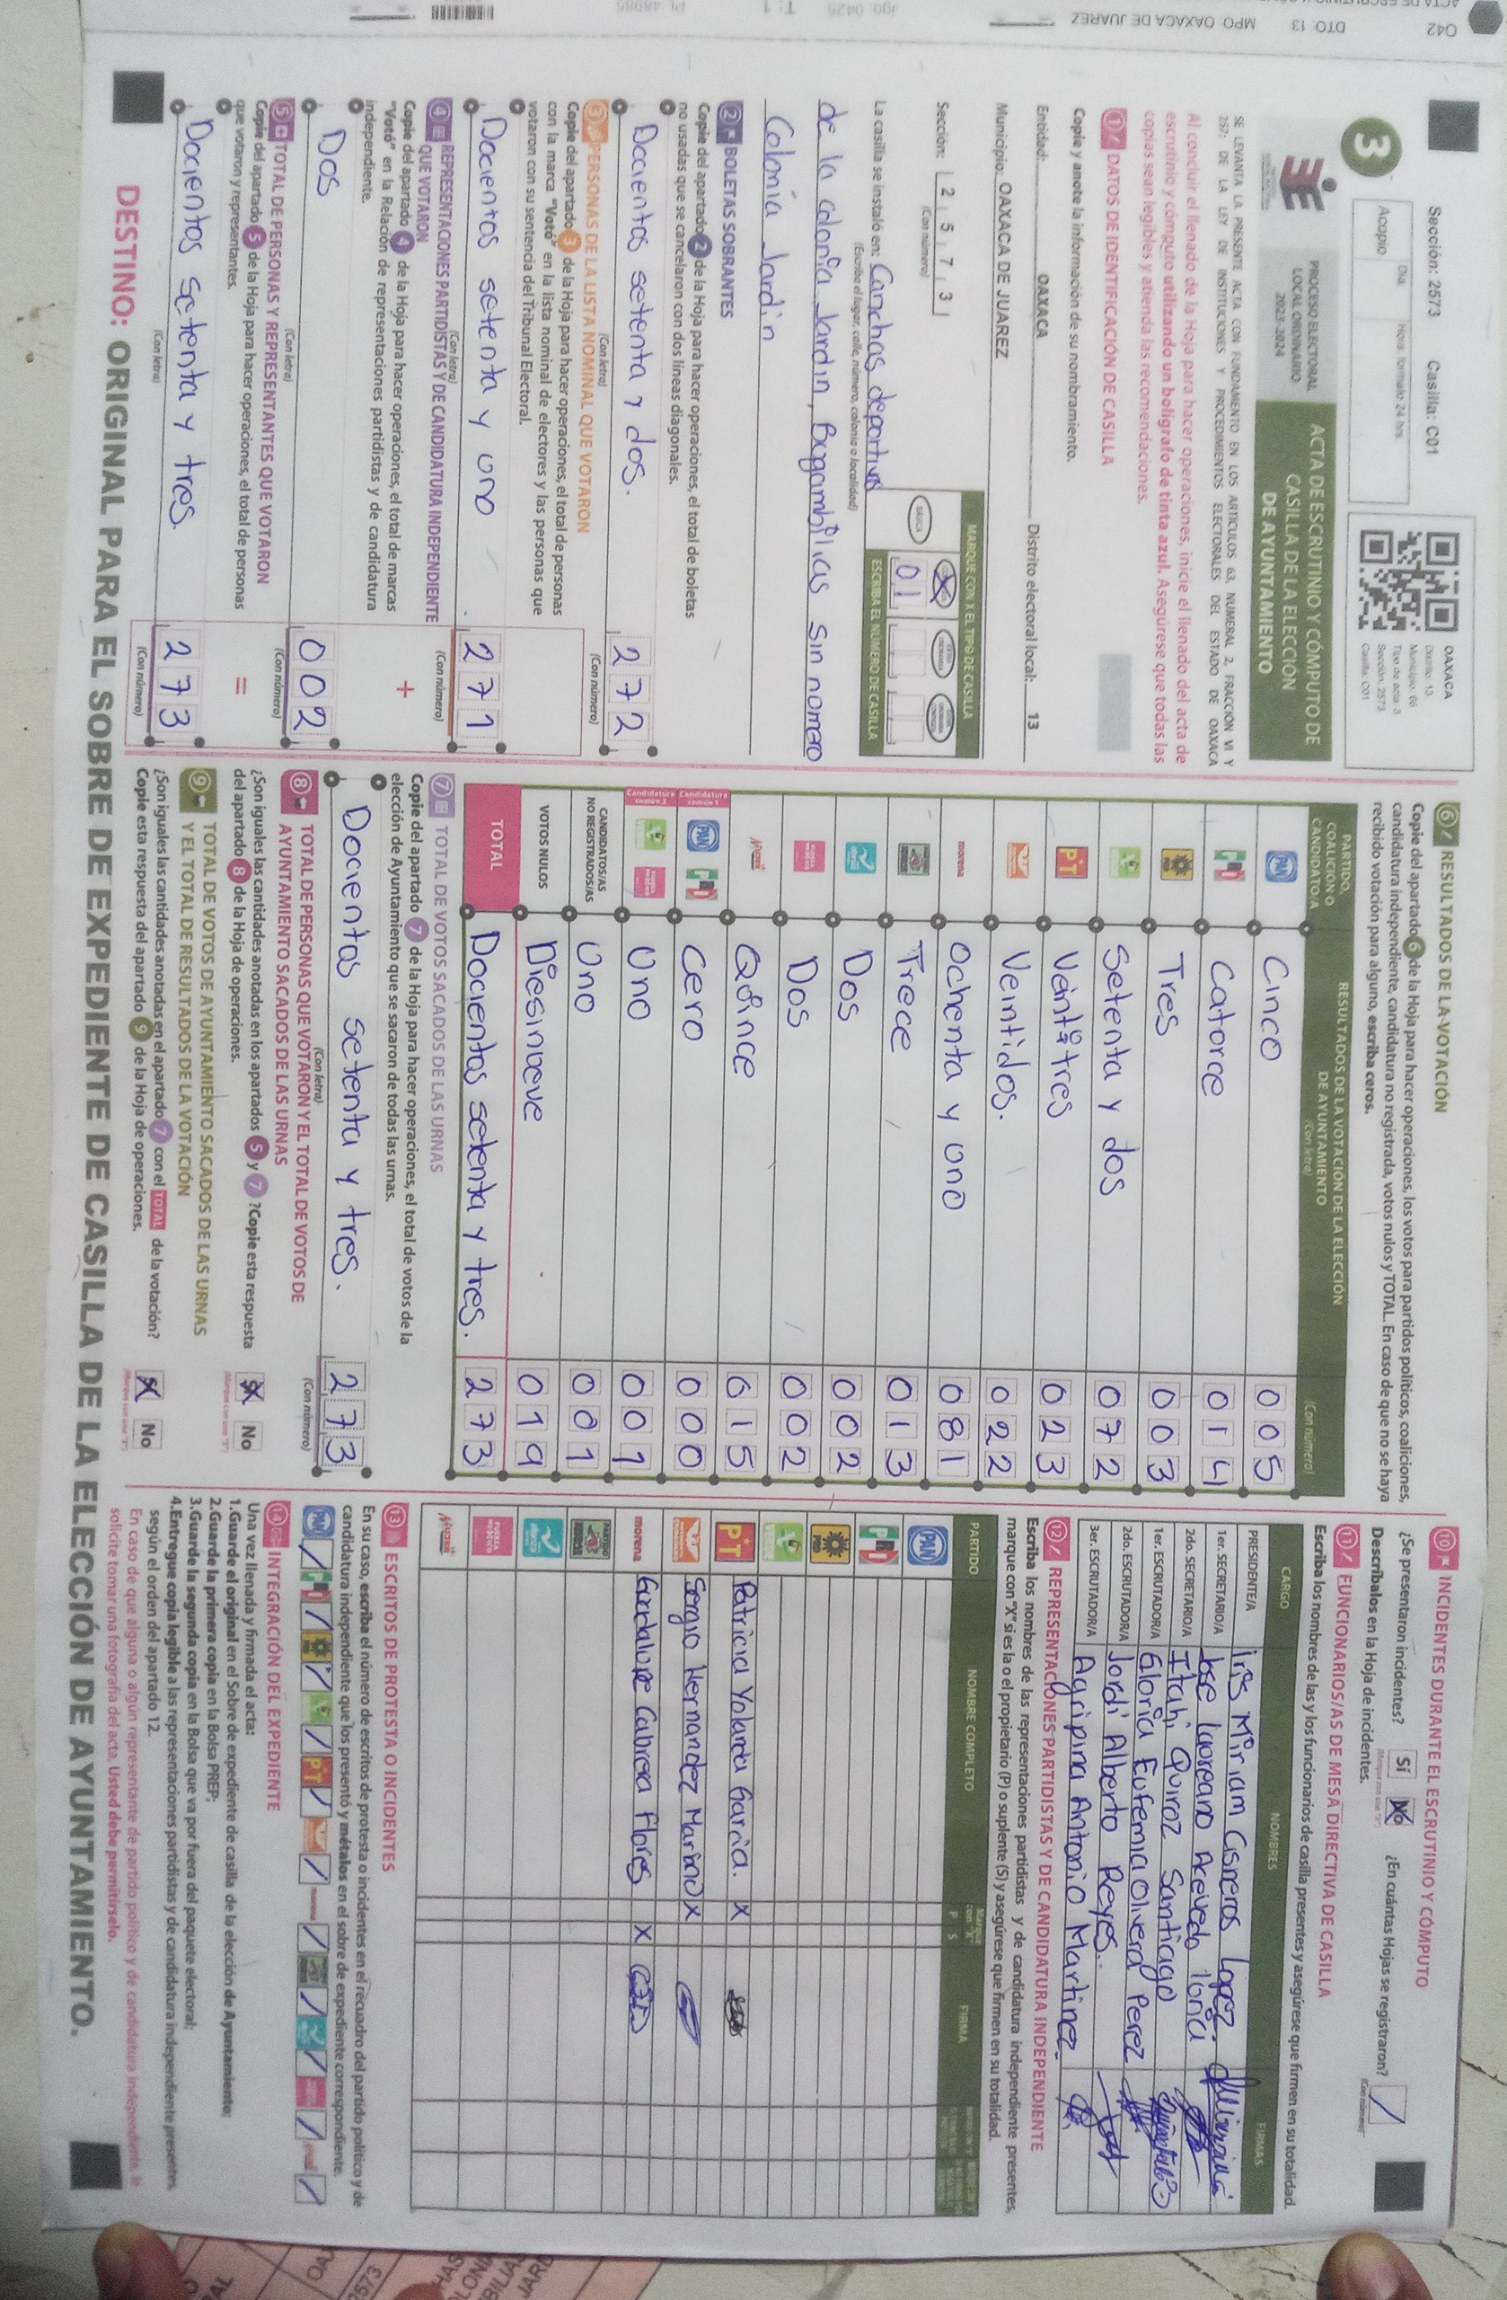 042 DTO 13 MPO OAXACA DE JUAREZ
Sección: 2573 Casilla: C01
Día Hora formato 24 hrs
Acopio
3
OAXACA
Distrito: 13
Tipo de acta: 3
Sección: 2573
Casilla: C01
PROCESO ELECTORAL
LOCAL ORDINARIO
2023-2024
ACTA DE ESCRUTINIO Y CÓMPUTO DE
CASILLA DE LA ELECCIÓN
DE AYUNTAMIENTO
SE LEVANTA LA PRESENTE ACTA CON FUNDAMENTO EN LOS ARTÍCULOS 63, NUMERAL 2, FRACCIÓN VI Y
257; DE LA LEY DE INSTITUCIONES Y PROCEDIMIENTOS ELECTORALES DEL ESTADO DE OAXACA
Al concluir el llenado de la Hoja para hacer operaciones, inicie el llenado del acta de
escrutinio y cómputo utilizando un bolígrafo de tinta azul. Asegúrese que todas las
copias sean legibles y atienda las recomendaciones.
1 DATOS DE IDENTIFICACIÓN DE CASILLA
Copie y anote la información de su nombramiento.
Entidad: OAXACA Distrito electoral local: 13
Municipio: OAXACA DE JUAREZ
Sección: 2 5 7 3
(Con número)
MARQUE CON X EL TIPO DE CASILLA
BÁSICA
01
ESCRIBA EL NÚMERO DE CASILLA
La casilla se instaló en: Canchas deportivas
(Escriba el lugar, calle, número, colonia o localidad)
de la colonia Jardin, Bugambilias sin nomero
Colonia Jardin
2 BOLETAS SOBRANTES
Copie del apartado 2 de la Hoja para hacer operaciones, el total de boletas
no usadas que se cancelaron con dos líneas diagonales.
Docientos setenta y dos. 272
(Con letra) (Con número)
3 PERSONAS DE LA LISTA NOMINAL QUE VOTARON
Copie del apartado 3 de la Hoja para hacer operaciones, el total de personas
con la marca "Votó" en la lista nominal de electores y las personas que
votaron con su sentencia del Tribunal Electoral.
Docientos setenta y uno 271
(Con letra) (Con número)
4 REPRESENTACIONES PARTIDISTAS Y DE CANDIDATURA INDEPENDIENTE
QUE VOTARON
Copie del apartado 4 de la Hoja para hacer operaciones, el total de marcas
"Votó" en la Relación de representaciones partidistas y de candidatura
independiente.
+
Dos 002
(Con letra) (Con número)
5 TOTAL DE PERSONAS Y REPRESENTANTES QUE VOTARON
Copie del apartado 5 de la Hoja para hacer operaciones, el total de personas
que votaron y representantes.
=
Docientos setenta y tres. 273
(Con letra) (Con número)
6 RESULTADOS DE LA VOTACIÓN
Copie del apartado 6 de la Hoja para hacer operaciones, los votos para partidos políticos, coaliciones,
candidatura independiente, candidatura no registrada, votos nulos y TOTAL. En caso de que no se haya
recibido votación para alguno, escriba ceros.
PARTIDO, COALICIÓN O CANDIDATO/A
RESULTADOS DE LA VOTACIÓN DE LA ELECCIÓN
DE AYUNTAMIENTO
(Con letra) (Con número)
PAN Cinco 005
PRI Catorce 014
PRD Tres 003
Setenta y dos 072
PT Veintitres 023
Veintidos. 022
morena Ochenta y uno 081
Trece 013
Dos 002
Dos 002
Quince 015
Candidatura común 1 PAN PRI Cero 000
Candidatura común 2 Uno 001
CANDIDATOS/AS
NO REGISTRADOS/AS Uno 001
VOTOS NULOS Diesinueve 019
TOTAL Docientos setenta y tres. 273
7 TOTAL DE VOTOS SACADOS DE LAS URNAS
Copie del apartado 7 de la Hoja para hacer operaciones, el total de votos de la
elección de Ayuntamiento que se sacaron de todas las urnas.
Docientos setenta y tres. 273
(Con letra) (Con número)
8 TOTAL DE PERSONAS QUE VOTARON Y EL TOTAL DE VOTOS DE
AYUNTAMIENTO SACADOS DE LAS URNAS
¿Son iguales las cantidades anotadas en los apartados 5 y 7 ? Copie esta respuesta
del apartado 8 de la Hoja de operaciones.
Sí No
9 TOTAL DE VOTOS DE AYUNTAMIENTO SACADOS DE LAS URNAS
Y EL TOTAL DE RESULTADOS DE LA VOTACIÓN
¿Son iguales las cantidades anotadas en el apartado 7 con el TOTAL de la votación?
Copie esta respuesta del apartado 9 de la Hoja de operaciones.
Sí No
10 INCIDENTES DURANTE EL ESCRUTINIO Y CÓMPUTO
¿Se presentaron incidentes? Sí No ¿En cuántas Hojas se registraron?
Descríbalos en la Hoja de incidentes. (Con número)
11 FUNCIONARIOS/AS DE MESA DIRECTIVA DE CASILLA
Escriba los nombres de las y los funcionarios de casilla presentes y asegúrese que firmen en su totalidad.
CARGO NOMBRES FIRMAS
PRESIDENTE/A Iris Miriam Cisneros Lopez.
1er. SECRETARIO/A Jose Laureano Acevedo Loria
2do. SECRETARIO/A Itahi Quiroz Santiago
1er. ESCRUTADOR/A Gloria Eufemia Olivera Perez
2do. ESCRUTADOR/A Jordi Alberto Reyes.
3er. ESCRUTADOR/A Agripina Antonio Martinez
12 REPRESENTACIONES PARTIDISTAS Y DE CANDIDATURA INDEPENDIENTE
Escriba los nombres de las representaciones partidistas y de candidatura independiente presentes,
marque con "X" si es la o el propietario (P) o suplente (S) y asegúrese que firmen en su totalidad.
PARTIDO NOMBRE COMPLETO P S FIRMA
PAN
PRI
PRD
PT Patricia Yolanda Garcia. X
Sergio Hernandez Marino X
morena Guadalupe Cabrera Flores X
13 ESCRITOS DE PROTESTA O INCIDENTES
En su caso, escriba el número de escritos de protesta o incidentes en el recuadro del partido político y de
candidatura independiente que los presentó y métalos en el sobre de expediente correspondiente.
14 INTEGRACIÓN DEL EXPEDIENTE
Una vez llenada y firmada el acta:
1.Guarde el original en el Sobre de expediente de casilla de la elección de Ayuntamiento;
2.Guarde la primera copia en la Bolsa PREP;
3.Guarde la segunda copia en la Bolsa que va por fuera del paquete electoral;
4.Entregue copia legible a las representaciones partidistas y de candidatura independiente presentes,
según el orden del apartado 12.
En caso de que alguna o algún representante de partido político y de candidatura independiente, le
solicite tomar una fotografía del acta, Usted debe permitírselo.
DESTINO: ORIGINAL PARA EL SOBRE DE EXPEDIENTE DE CASILLA DE LA ELECCIÓN DE AYUNTAMIENTO.